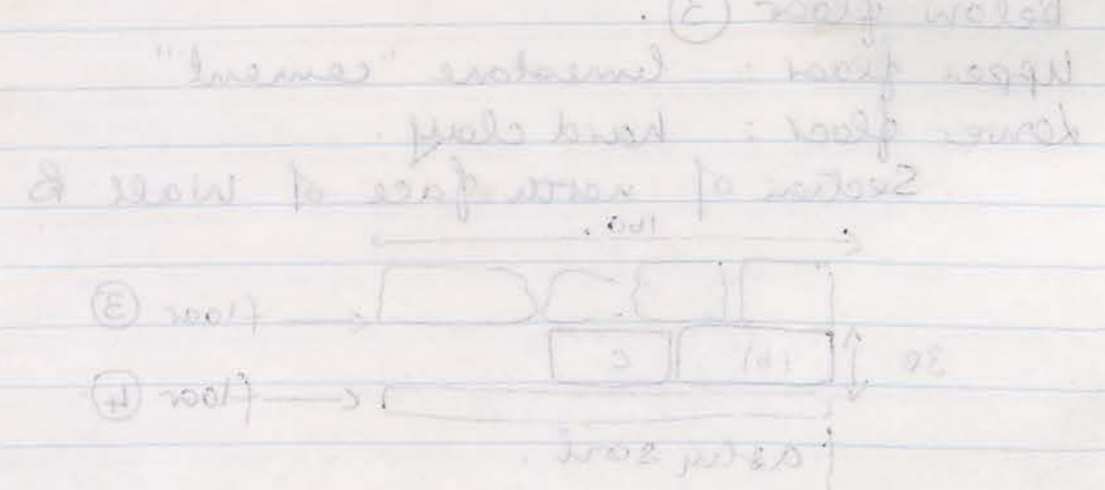 below floor ③.
Upper floor : limestone "cement"
Lower floor : hard clay
Section of north face of Wall B
160
floor ③
(b) c
30
floor ④
ashy soil.